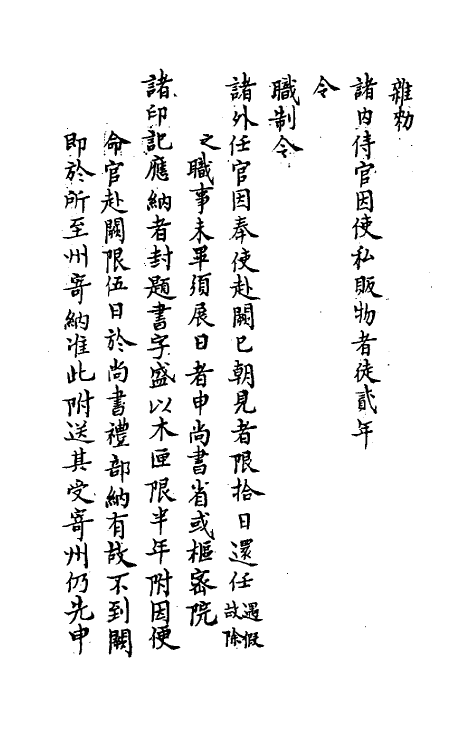 雜勅
諸内侍官因使私販物者徒貳年
令
職制令
諸外任官因奉使赴闕已朝見者限拾日還任遇假故除
之職事未畢須展日者申尚書省或樞密院
諸印記應納者封題書字盛以木匣限半年附因便
命官赴闕限伍日於尚書禮部納有故不到闕
即於所至州寄納准此附送其受寄州仍先申